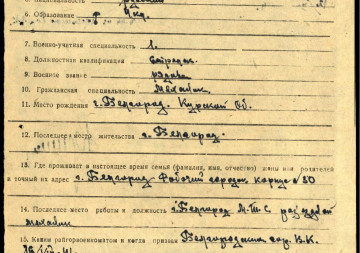 6. Образование 4 кл.
7. Военно-учетная специальность 1.
8. Должностная квалификация
9. Военное звание рядовой
10. Гражданская специальность механик
11. Место рождения г. Белгород. Курской об.
12. Последнее место жительства г. Белгород.
13. Где проживает в настоящее время семья (фамилия, имя, отчество) жены или родителей
и точный их адрес г. Белгород Рабочий городок корпус 50
14. Последнее место работы и должность г. Белгород М.Т.С.
механик
15. Каким райгорвоенкоматом и когда призван Белгородским В.К.